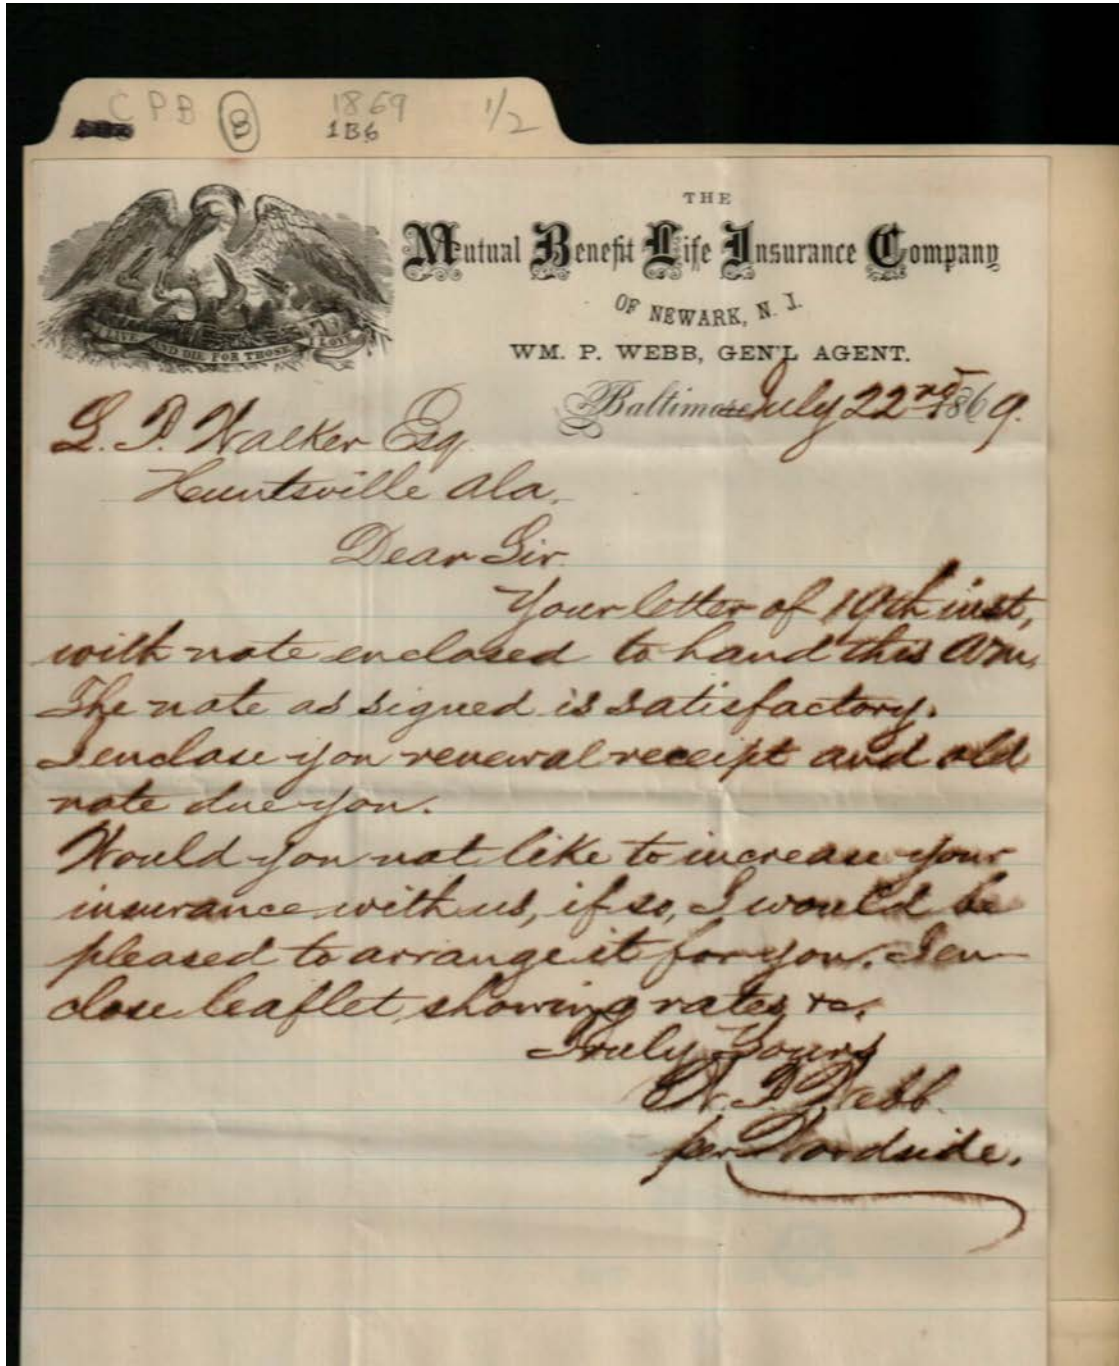 C P B B 1869 1/2
1B6
THE
Mutual Benefit Life Insurance Company
OF NEWARK, N. J.
I LIVE AND DIE FOR THOSE I LOVE
WM. P. WEBB, GEN'L AGENT.
Baltimore July 22nd 1869.
L. P. Walker Esq.
Huntsville Ala.
Dear Sir
Your letter of 19th inst,
with note enclosed to hand this am.
The note as signed is satisfactory.
I enclose you renewal receipt and old
note due you.
Would you not like to increase your
insurance with us, if so, I would be
pleased to arrange it for you. I en-
close leaflet showing rates, &c.
Truly Yours
W. P. Webb.
per Woodside.